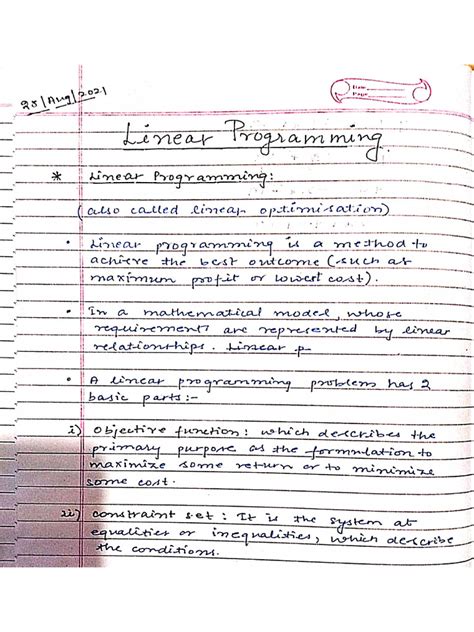 28/Aug/2021
Date
Page
Linear Programming
* Linear Programming:
(also called linear optimisation)
• Linear programming is a method to
achieve the best outcome (such as
maximum profit or lowest cost).
• In a mathematical model, whose
requirement are represented by linear
relationships. Linear p
• A linear programming problem has 2
basic parts:-
i) Objective function: which describes the
primary purpose as the formulation to
maximize some return or to minimize
some cost.
ii) constraint set: It is the system at
equalities or inequalities, which describe
the conditions.